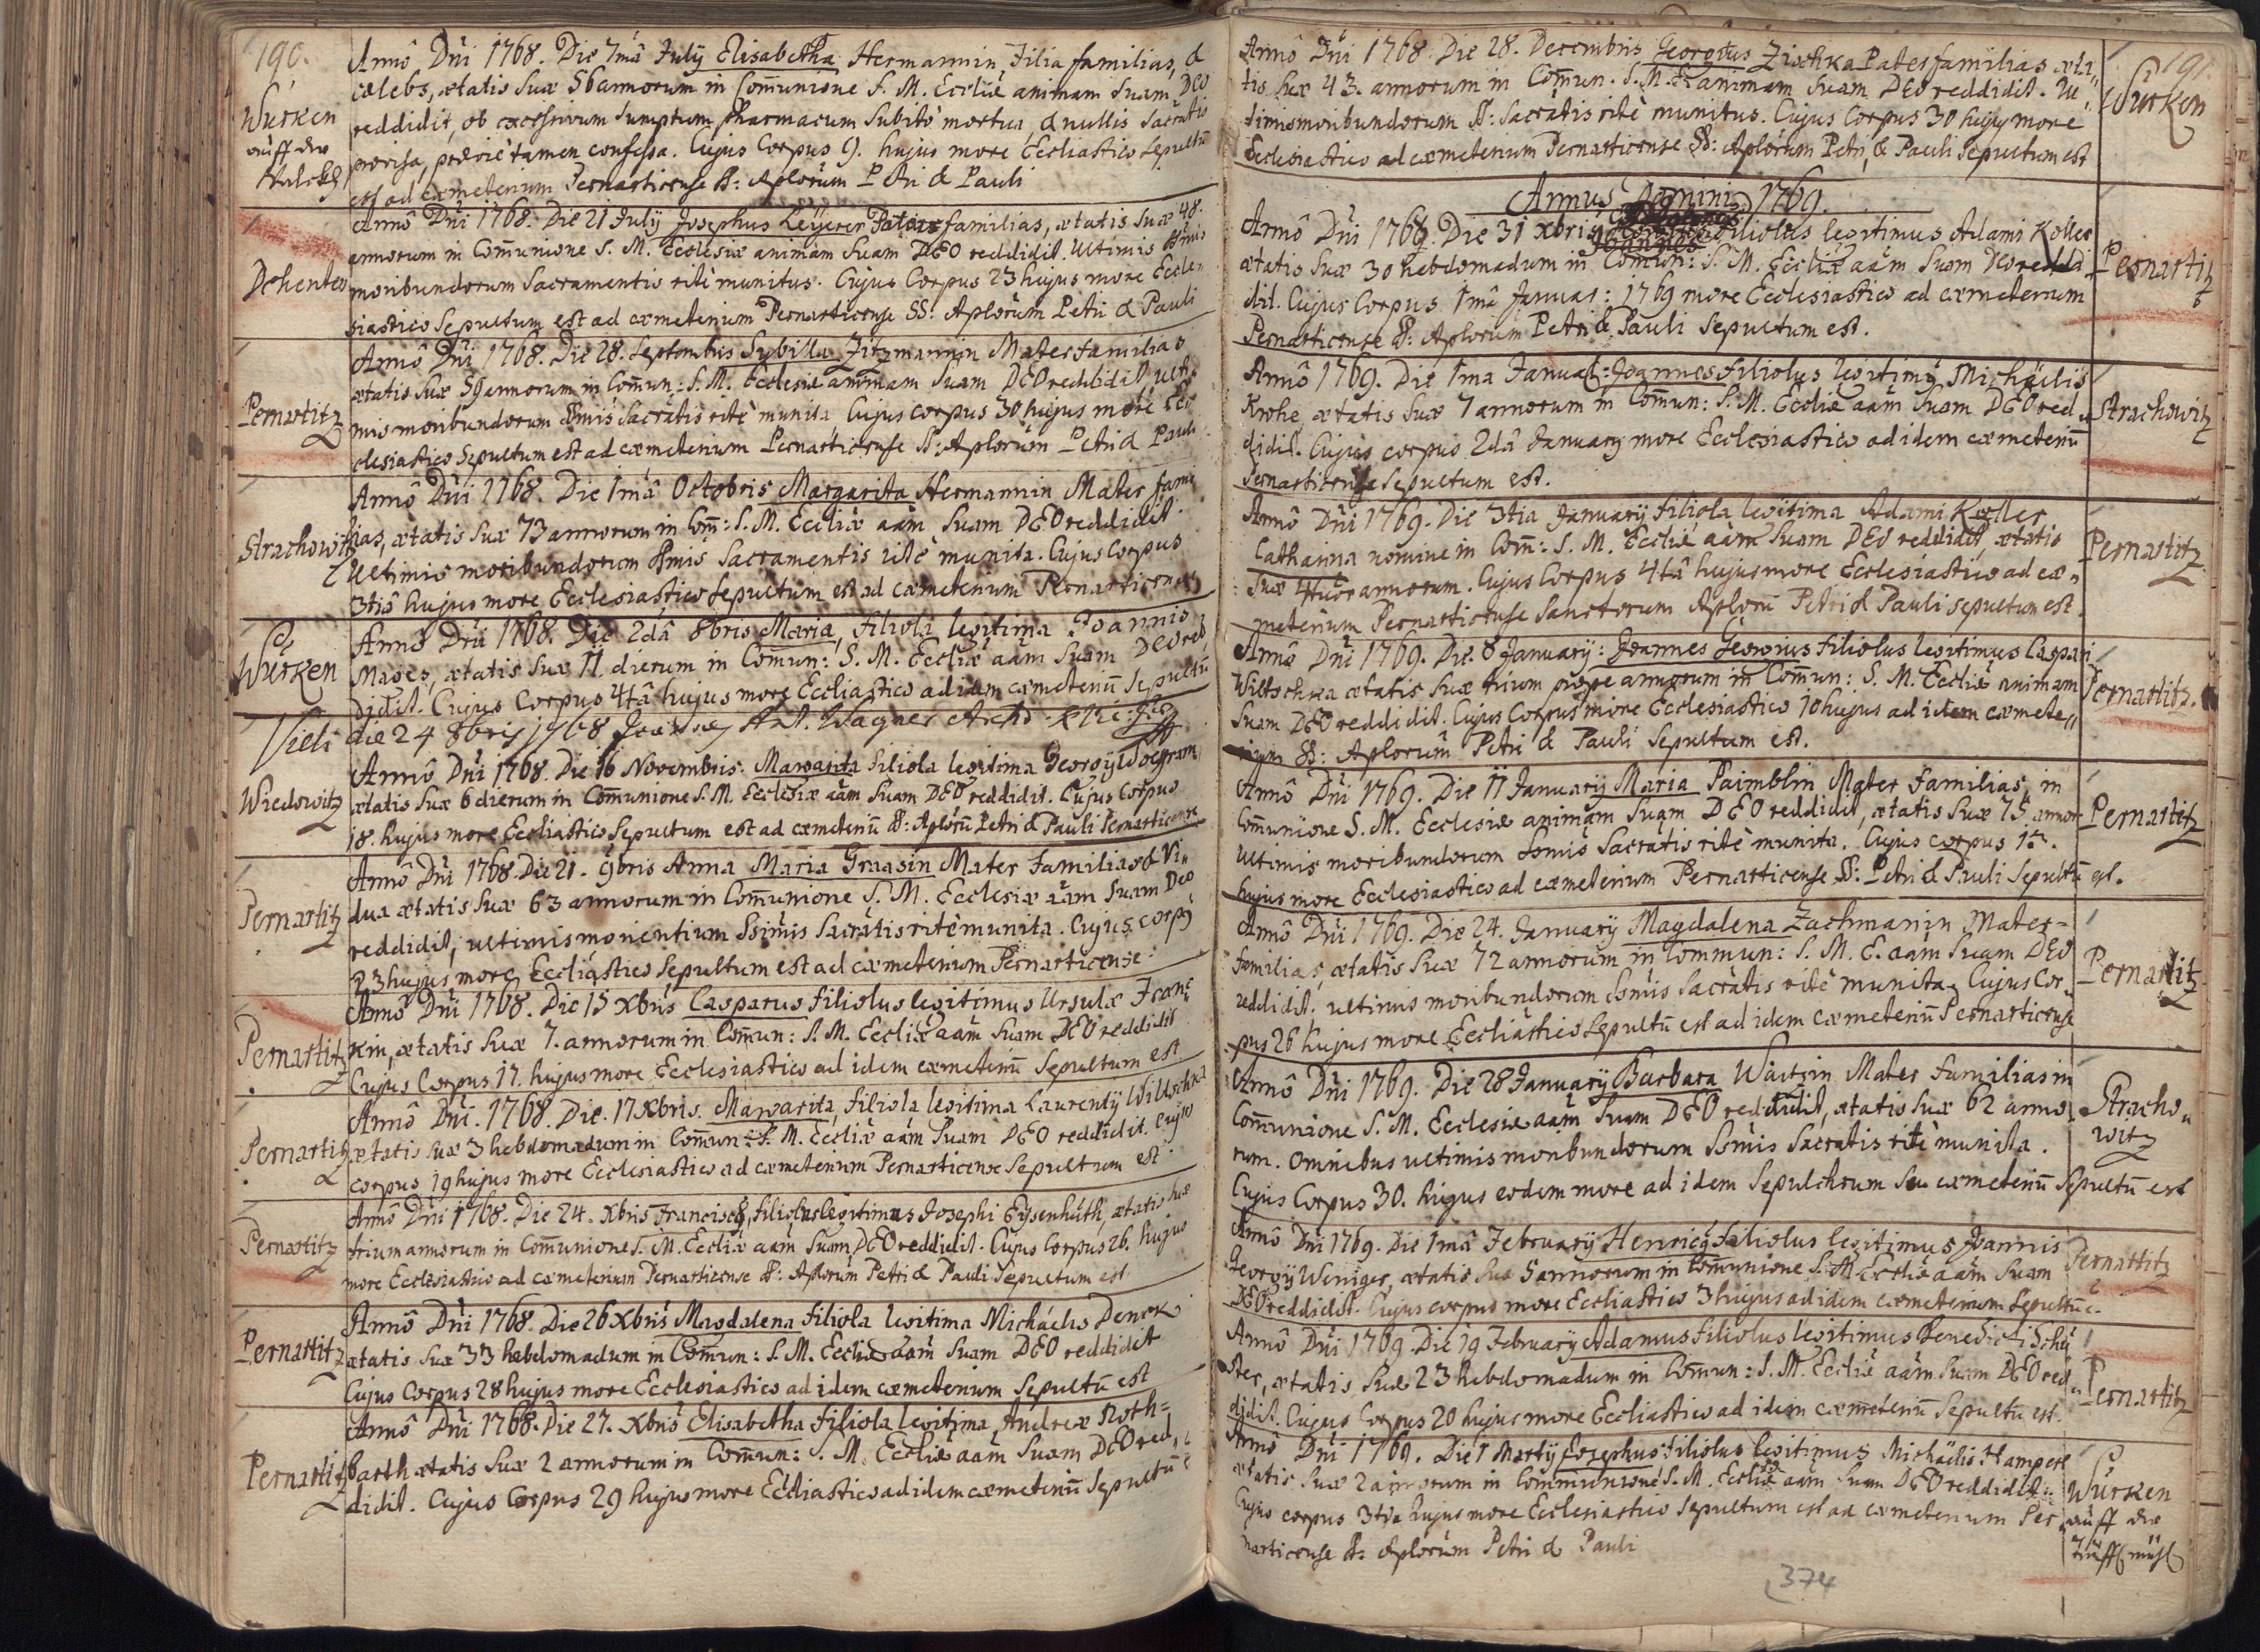 190.
Würken
auff der
Annô Dñi 1768. Die 7mâ July Elisabetha Hermannin Filia familias, &
cælebs, ætatis suæ 56 annorum in Com̃unione S. M. Eccliæ animam suam DEO
reddidit, ob excessivum sumptum Pharmacum subitò mortua, & nullis Sacrãtis
provisa, pridie tamen confessa. Cujus Corpus 9. hujus more Eccliastico Sepultũ
est ad cæmeterium Pernarticense SS: Aplorũm Petri & Pauli
Dehenten
Annô Dñi 1768. Die 21 July Josephus Leÿerer Pater familias, ætatis suæ 48.
annorum in Com̃unione S. M. Ecclesiæ animam suam DEO reddidit. Ultimis SSmis
moribundorum Sacramentis ritè munitus. Cujus Corpus 23 hujus more Eccle
siastico Sepultum est ad cæmeterium Pernarticense SS: Aplorũm Petri & Pauli
Pernartitz
Annô Dñi 1768. Die 28. Septembris Sybilla Zitzmannin Mater familias
ætatis suæ 59 annorum in Com̃un: S. M. Ecclesiæ animam suam DEO reddidit, ulti
mis moribundorum SSmis Sacrãtis ritè munita, Cujus corpus 30 hujus more Ec
clesiastico Sepultum est ad cæmeterium Pernarticense SS: Aplorũm Petri & Pauli
Strachowitz
Annô Dñi 1768. Die 1mâ Octobris Margarita Hermannin Mater fami
lias, ætatis suæ 73 annorum in Com̃: S. M. Eccliæ aãm suam DEO reddidit.
Ultimis moribundorum SSmis Sacramentis ritè munita. Cujus Corpus
3tiâ hujus more Ecclesiastico Sepultum est ad cæmeterium Pernarticense
Würken
Annô Dñi 1768. Die 2dâ 8bris Maria, filiola legitima Joannis
ætatis suæ 11 dierum in Com̃un: S. M. Eccliæ aãm suam DEO red
didit. Cujus Corpus 4tâ hujus more Eccliastico ad idem cæmeteriũ Sepultũ
Vidi die 24 8bris 1768 Joannes Ant. Wagner
Wiedowitz
Annô Dñi 1768. Die 16 Novembris. Margarita filiola legitima Georgÿ Wolfram
ætatis suæ 6 dierum in Com̃unione S. M. Ecclesiæ aãm suam DEO reddidit. Cujus Corpus
18. hujus more Eccliastico Sepultum est ad cæmeteriũ SS: Aplorũ Petri & Pauli Pernarticense
Pernartitz
Annô Dñi 1768. Die 21. 9bris Anna Maria Graasin Mater familias & Vi„
dua ætatis suæ 63 annorum in Com̃unione S. M. Ecclesiæ aãm suam Deo
reddidit, ultimis morientium SSimis Sacrãtis ritè munita. Cujus corpꝰ
23 hujus more Eccliastico Sepultum est ad cæmeterium Pernarticense.
Pernartitz
Annô Dñi 1768. Die 15 Xbris Casparus filiolus legitimus Ursulæ Fran
kin, ætatis suæ 7. annorum in Com̃un: S. M. Eccliæ aãm suam DEO reddidit
Cujus Corpus 17. hujus more Ecclesiastico ad idem cæmeteriũ Sepultum est.
Pernartitz
Annô Dñi. 1768. Die. 17 Xbris. Margarita, filiola legitima Laurentÿ Wiltschka
ætatis suæ 3 hebdomadum in Com̃un: S. M. Eccliæ aãm suam DEO reddidit. Cujus
corpus 19 hujus more Ecclesiastico ad cæmeterium Pernarticense Sepultum est.
Pernartitz
Annô Dñi 1768. Die 24. Xbris Franciscꝰ, filiolus legitimus Josephi Eysenhuth, ætatis suæ
trium annorum in Com̃unione S. M. Eccliæ aãm suam DEO reddidit. Cujus Corpus 26. hujus
more Ecclesiastico ad cæmeterium Pernarticense SS: Aplorũm Petri & Pauli Sepultum est
Pernartitz
Annô Dñi 1768. Die 26 Xbris Magdalena filiola legitima Michaelis Denck
ætatis suæ 33 hebdomadum in Com̃un: S. M. Eccliæ aãm suam DEO reddidit
Cujus Corpus 28 hujus more Ecclesiastico ad idem cæmeterium Sepultũ est
Pernartitz
Annô Dñi 1768. Die 27. Xbris Elisabetha filiola legitima Andreæ Roth=
barth ætatis suæ 2 annorum in Com̃un: S. M. Eccliæ aãm suam DEO red„
didit. Cujus Corpus 29 hujus more Eccliastico ad idem cæmeteriũ Sepultũ
191.
Würken
Annô Dñi 1768. Die 28. Decembris Georgius Zischka Pater familias æta„
tis suæ 43. annorum in Com̃un. S. M. E. animam suam DEO reddidit. Ul„
timis moribundorum SS: Sacratis ritè munitus. Cujus Corpus 30 hujus more
Ecclesiastico ad cæmeterium Pernarticense SS: Aplõrum Petri, & Pauli Sepultum est
Annus Domini 1769.
Pernartitz
Annô Dñi 1769. Die 31 Xbris Joannes filiolus legitimus Adami Koller
ætatis suæ 30 hebdomadum in Com̃un: S. M. Eccliæ aãm suam DEO redd
dit. Cujus Corpus 1mâ Januar: 1769 more Ecclesiastico ad cæmeterium
Pernarticense SS: Aplorum Petri & Pauli Sepultum est.
Strachowitz
Annô 1769. Die 1ma Januar: Joannes filiolus legitimꝰ Michaelis
Krohe, ætatis suæ 7 annorum in Com̃un: S. M. Eccliæ aãm suam DEO red„
didit. Cujus corpus 2dâ January more Ecclesiastico ad idem cæmeteriũ
Pernarticense Sepultum est.
Pernartitz
Annô Dñi 1769. Die 3tia Januarÿ filiola legitima Adami Koller
Catharina nomine in Com̃: S. M. Eccliæ aãm suam DEO reddidit, ætatis
suæ 4tuor annorum. Cujus Corpus 4tâ hujus more Ecclesiastico ad cæ„
meterium Pernarticense Sanctorum Aplorũ Petri & Pauli sepultum est.
Pernartitz.
Annô Dñi 1769. Die. 8 January: Joannes Georgius filiolus legitimus Caspari
Wiltschka ætatis suæ trium prope annorum in Com̃un: S. M. Eccliæ animam
suam DEO reddidit. Cujus Corpus more Ecclesiastico 10 hujus ad idem cæmete„
rium SS: Aplorum Petri & Pauli Sepultum est.
Pernartitz
Annô Dñi 1769. Die 11 Januarÿ Maria Paimblin Mater familias, in
Com̃unione S. M. Ecclesiæ animam suam DEO reddidit, ætatis suæ 75 annor
Ultimis moribundorum SSmis Sacratis ritè munita. Cujus corpus 13.
hujus more Ecclesiastico ad cæmeterium Pernarticense SS: Petri & Pauli Sepultũ est.
Pernartitz
Annô Dñi 1769. Die 24. Januarÿ Magdalena Zachmanin Mater=
familias, ætatis suæ 72 annorum in Commun: S. M. E. aãm suam DEO
reddidit. ultimis moribundorum SSmis Sacrãtis ritè munita. Cujus Cor„
pus 26 hujus more Eccliastico Sepultũ est ad idem cæmeteriũ Pernarticense
Stracho„
witz
Annô Dñi 1769. Die 28 January Barbara Mater familias in
Com̃unione S. M. Ecclesiæ aãm suam DEO reddidit, ætatis suæ 62 anno
rum. Omnibus ultimis moribundorum SSmis Sacratis ritè munita.
Cujus Corpus 30. hujus eodem more ad idem Sepulchrum seu cæmeteriũ Sepultũ est
Pernartitz
Annô Dñi 1769. Die 1mâ February Henricꝰ filiolus legitimus Joannis
Georgÿ Weniger, ætatis suæ 5 annorum in Com̃unione S. M. Eccliæ aãm suam
DEO reddidit. Cujus corpus more Eccliastico 3 hujus ad idem cæmeterium Sepultũ e.
Pernartitz
Annô Dñi 1769. Die 19 February Adamus filiolus legitimus Benedicti Schu
ster, ætatis suæ 23 hebdomadum in Com̃un: S. M. Eccliæ aãm suam DEO red„
didit. Cujus Corpus 20 hujus more Eccliastico ad idem cæmeteriũ Sepultũ est.
Würken
auff der
Annô Dñi 1769. Die 1 Martÿ Josephus filiolus legitimus Michaelis Hamperl
ætatis suæ 2 annorum in Communione S. M. Eccliæ aãm suam DEO reddidit.
Cujus corpus 3tia hujus more Ecclesiastico Sepultum est ad cæmeterium Per„
narticense SS: Aplorũm Petri & Pauli
374